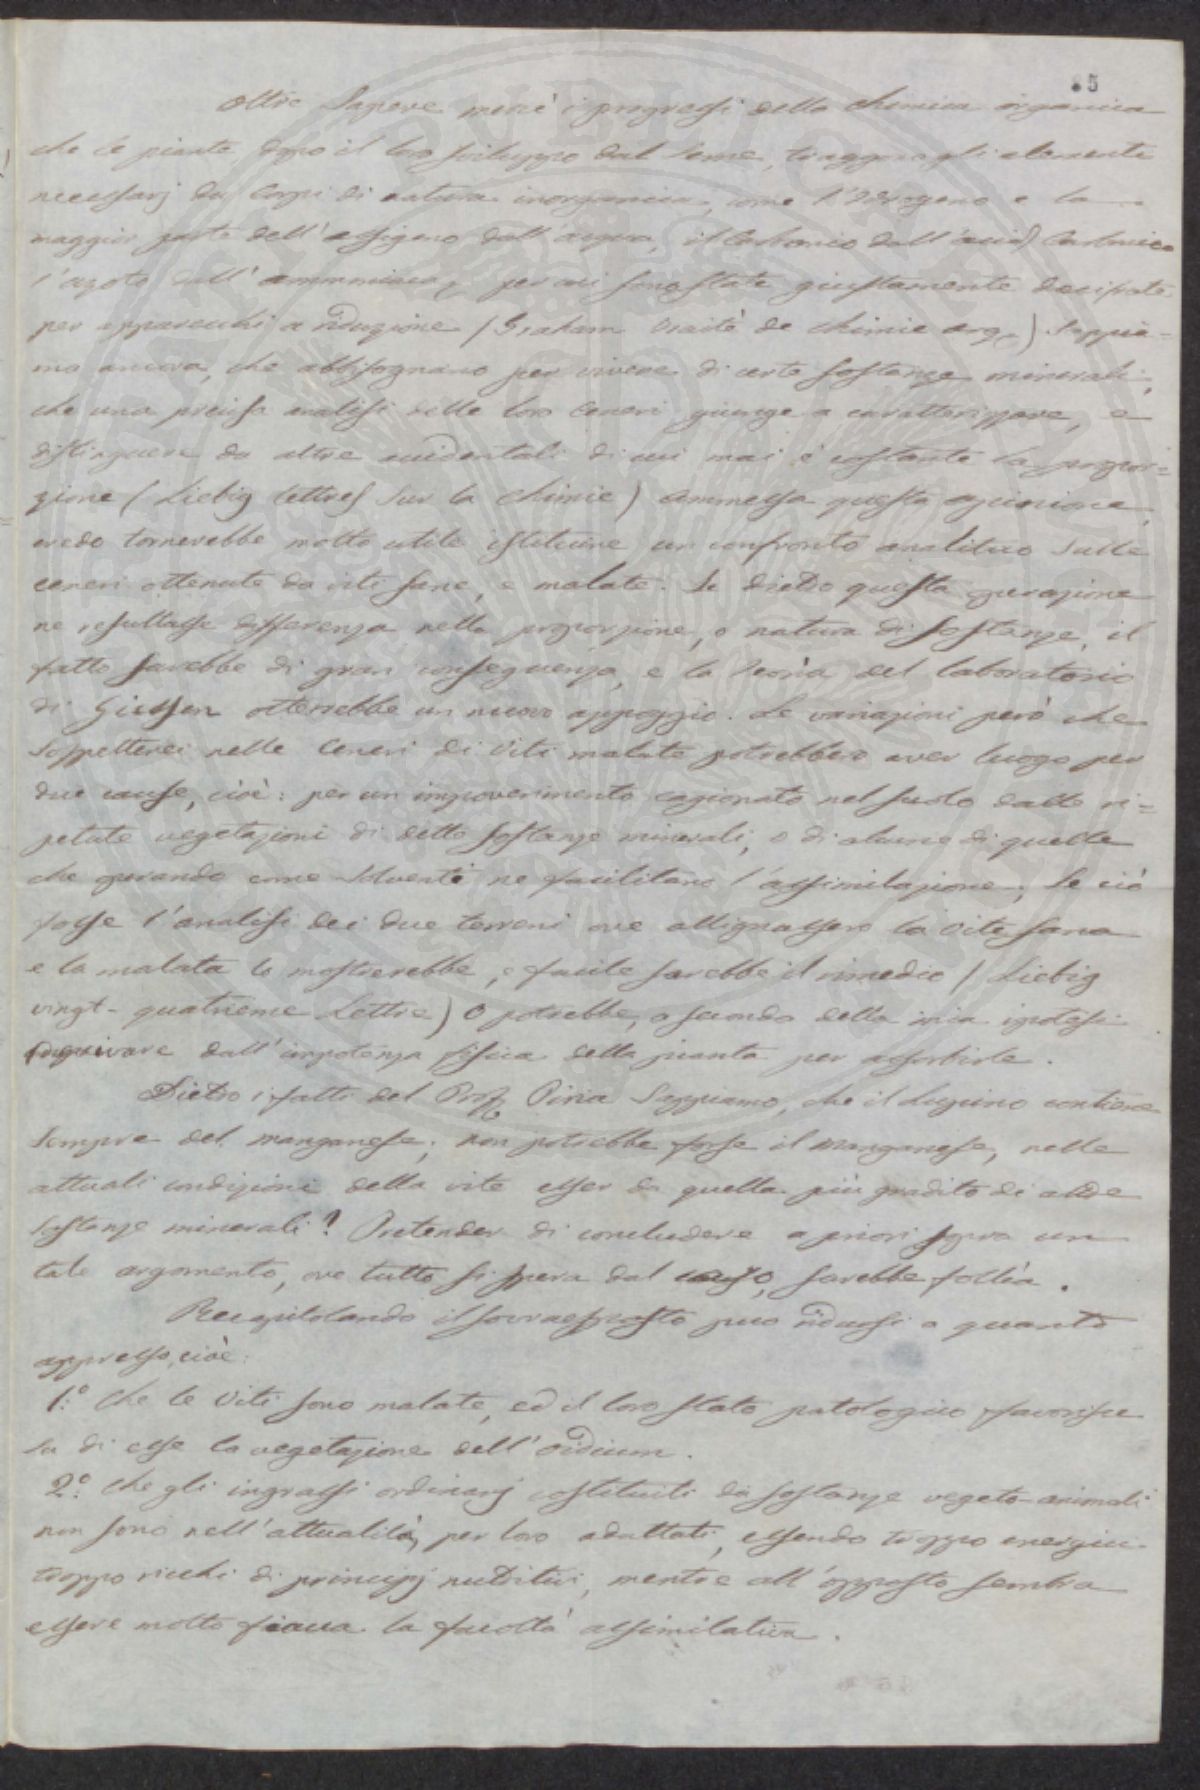 85
Oltre Sapere mercè i progressi della chimica organica
che le piante dopo il loro sviluppo dal seme, traggono gli elementi
necessarj da Corpi di natura inorganica, come l'Idrogeno e la
maggior parte dell'ossigeno dall'acqua, il Carbonio dall'acido Carbonico
l'azoto dall'ammoniaca, per cui sono state giustamente
per apparecchi a riduzione (Graham Traité de chimie org.) Sappia-
mo ancora, che abbisognano per vivere di certe sostanze minerali,
che una precisa analisi delle loro Ceneri giunge a caratterizzare, e
distinguere da altre accidentali di cui mai è costante la propor=
zione (Liebig lettres sur la chimie) ammessa questa opinione,
credo tornerebbe molto utile istituire un confronto analitico sulle
ceneri ottenute da viti sane, e malate. Se dietro questa operazione
ne resultasse differenza nella proporzione, o natura di sostanze, il
fatto sarebbe di gran conseguenza, e la teorìa del laboratorio
di Giessen otterrebbe un nuovo appoggio. Le variazioni però che
sospetterei nelle Ceneri di Viti malate potrebbero aver luogo per
due cause, cioè: per un impoverimento cagionato nel suolo dalle ri=
petute vegetazioni di dette sostanze minerali, o di alcune di quelle
che operando come solventi ne facilitano l'assimilazione; se ciò
fosse l'analisi dei due terreni ove allignassero la Vite sana
e la malata lo mostrerebbe, e facile sarebbe il rimedio (Liebig
vingt-quatrième Lettre) O potrebbe, a seconda della mia ipotesi
derivare dall'impotenza fisica della pianta per assorbirle.
Dietro i fatti del Prof. Piria Sappiamo, che il Lupino contiene
sempre del manganese; non potrebbe forse il manganese, nelle
attuali condizioni della vite esser da quella più gradito di altre
sostanze minerali? Pretender di concludere a priori sopra un
tale argomento, ove tutto si spera dal caso, sarebbe follìa.
Recapitolando il sovraesposto può ridursi a quanto
appresso, cioè:
1.° Che le Viti sono malate, ed il loro stato patologico favorisce
su di esse la vegetazione dell'oidium.
2.° Che gli ingrassi ordinarj costituiti da sostanze vegeto-animali
non sono nell'attualità, per loro adattati, essendo troppo energici
troppo ricchi di principj nutritivi, mentre all'opposto sembra
essere molto fiacca la facoltà assimilativa.